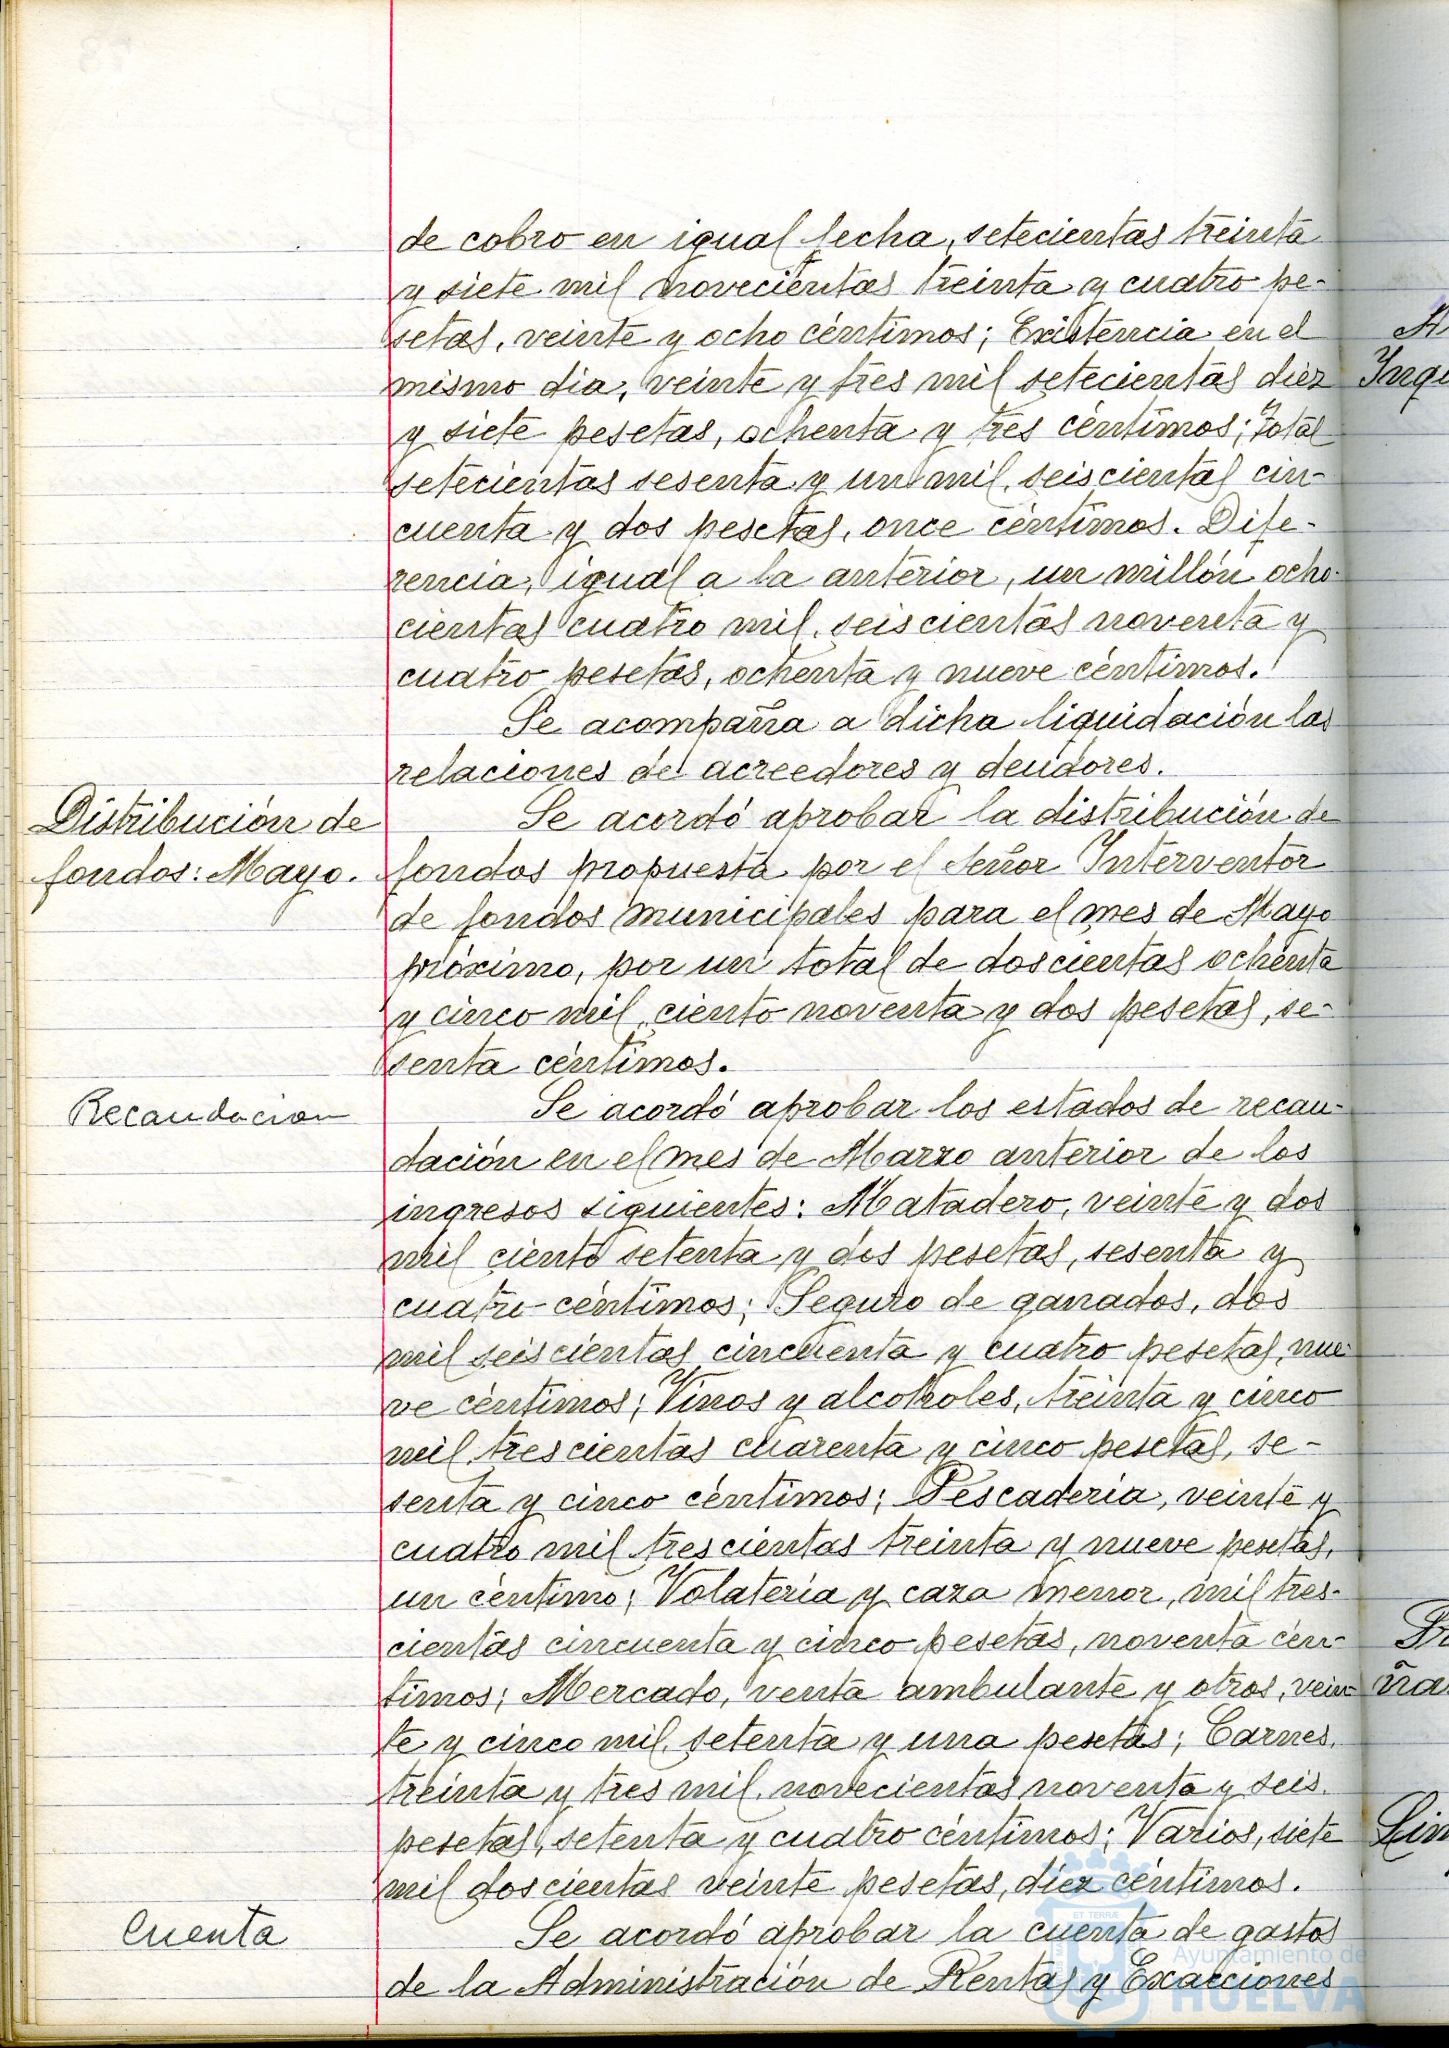 de cobro en igual fecha, setecientas treinta
y siete mil novecientas treinta y cuatro pe-
setas, veinte y ocho céntimos; Existencia en el
mismo dia, veinte y tres mil setecientas diez
y siete pesetas, ochenta y tres céntimos; Total
setecientas sesenta y un mil, seiscientas cin-
cuenta y dos pesetas, once céntimos. Dife-
rencia, igual a la anterior, un millón ocho-
cientas cuatro mil, seiscientas noventa y
cuatro pesetas, ochenta y nueve céntimos.
Se acompaña a dicha liquidación las
relaciones de acreedores y deudores.
Distribución de
fondos: Mayo.
Se acordó aprobar la distribución de
fondos propuesta por el Señor Interventor
de fondos municipales para el mes de Mayo
próximo, por un total de doscientas ochenta
y cinco mil, ciento noventa y dos pesetas, se-
senta céntimos.
Recaudacion
Se acordó aprobar los estados de recau-
dación en el mes de Marzo anterior de los
ingresos siguientes: Matadero, veinte y dos
mil ciento setenta y dos pesetas, sesenta y
cuatro céntimos; Seguro de ganados, dos
mil seiscientas cincuenta y cuatro pesetas, nue-
ve céntimos; Vinos y alcoholes, treinta y cinco
mil trescientas cuarenta y cinco pesetas, se-
senta y cinco céntimos; Pescaderia, veinte y
cuatro mil trescientas treinta y nueve pesetas,
un céntimo; Volateria y caza menor, mil tres-
cientas cincuenta y cinco pesetas, noventa cén-
timos; Mercado, venta ambulante y otros, vein-
te y cinco mil, setenta y una pesetas; Carnes,
treinta y tres mil, novecientas noventa y seis
pesetas, setenta y cuatro céntimos; Varios, siete
mil doscientas veinte pesetas, diez céntimos.
Cuenta
Se acordó aprobar la cuenta de gastos
de la Administración de Rentas y Exacciones
Ayuntamiento de
HUELVA